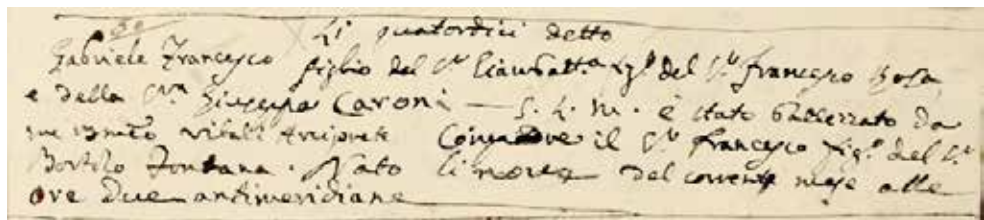 Li quatordici detto
Gabriele Francesco figlio del Sr Giambatta. figo del Sr Francesco Rosa
e della Sra Giuseppa Caroni — S. L. M. è stato battezzato da
me Vitali Arciprete Compadre il Sr Francesco figo del Sr
Bortolo Fontana. Nato li nove del corrente mese alle
ore due antimeridiane